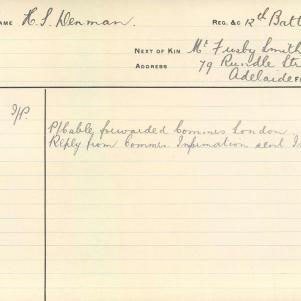 NAME H. S. Denman. REG. &c 12th Batt
NEXT OF KIN Mr Fusby Smith
ADDRESS 79 Rundle Str
Adelaide
I/P.
P/Cable forwarded Commrs London
Reply from Commrs. Information sent I